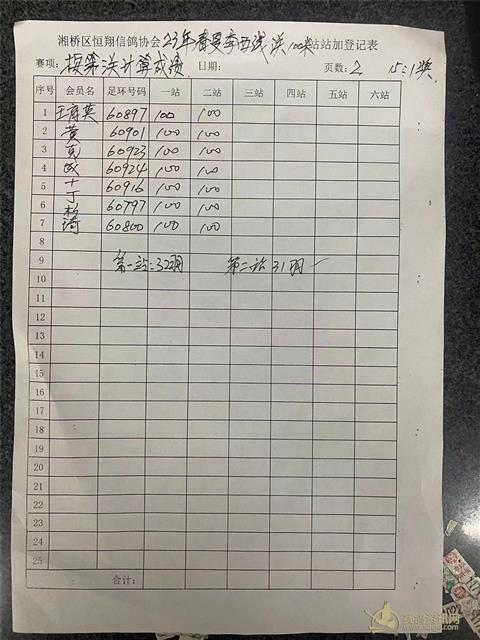 湘桥区恒翔信鸽协会23年春夏季西线洪100米站站加登记表
赛项：按第 计算成绩 日期： 页数：2 15：1奖
序号 会员名 足环号码 一站 二站 三站 四站 五站 六站
1 王 英 60897 100 100
2 黄 60901 100 100
3 60923 100 100
4 60924 100 100
5 60916 100 100
6 60797 100 100
7 60800 100 100
8
9 第一站：322羽 第二站31羽
10
11
12
13
14
15
16
17
18
19
20
21
22
23
24
25
合计：